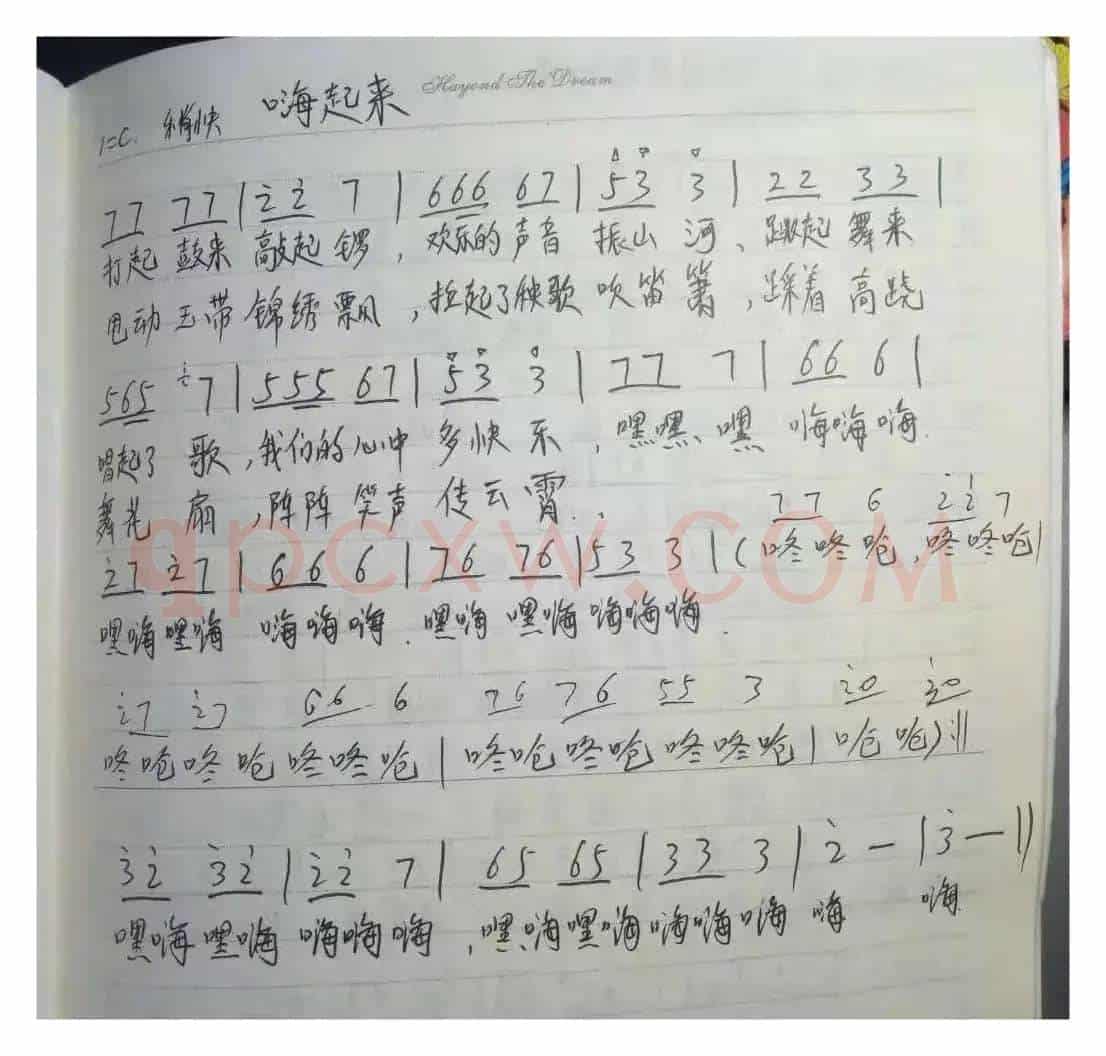 嗨起来 Heyond The Dream
1=C. 稍快
77 77 | 2̇2̇ 7 | 666 67 | 53 3 | 22 33 |
打起 鼓来 敲起 锣，欢乐的 声音 振山 河、跳起 舞来
甩动 玉带 锦绣 飘，拉起了秧歌 吹笛 箫，踩着 高跷
565 7 | 555 67 | 53 3 | 77 7 | 66 6 |
唱起了 歌，我们的 心中 多快 乐，嘿嘿、嘿 嗨嗨嗨.
舞花 扇，阵阵 笑声 传云 霄.
77 6 2̇2̇ 7
2̇7 2̇7 | 66 6 | 76 76 | 53 3 | (咚咚呛，咚咚呛|
嘿嗨嘿嗨 嗨嗨嗨. 嘿嗨 嘿嗨 嗨嗨嗨.
2̇7 2̇7 66 6 76 76 55 3 2̇0 3̇0
咚呛咚呛 咚咚呛 | 咚呛咚呛 咚咚呛 | 呛呛) :||
3̇2̇ 3̇2̇ | 2̇2̇ 7 | 65 65 | 33 3 | 2̇ — | 3̇ — ||
嘿嗨嘿嗨 嗨嗨嗨，嘿嗨嘿嗨 嗨嗨嗨 嗨 嗨.
qpcxw.COM